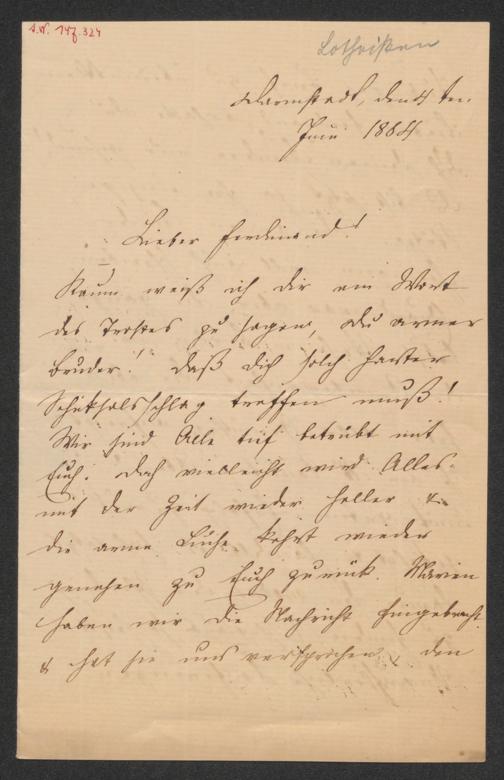 A.N. 147.324
Lotheißen
Darmstadt, den 4ten
Juni 1884
Lieber Ferdinand!
Kaum weiß ich dir ein Wort
des Trostes zu sagen, du armer
Bruder! Daß dich solch harter
Schiksalsschlag treffen muß!
Wir sind Alle tief betrübt mit
Euch. Doch vielleicht wird Alles
mit der Zeit wieder heller &
die arme kehrt wieder
genesen zu Euch zurück. Marien
haben wir die Nachricht hingebracht
& hat sie uns versprochen, den